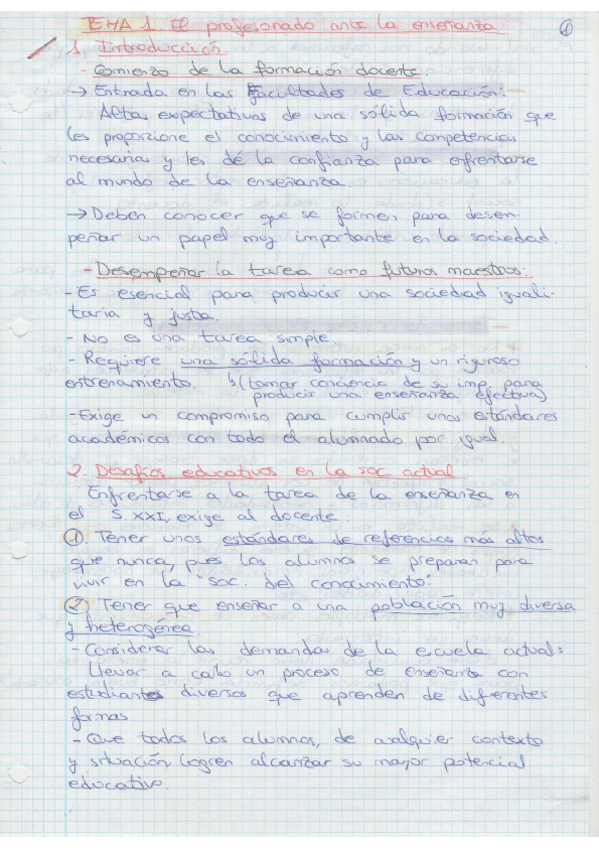 TEMA 1. El profesorado ante la enseñanza
1
1. Introducción
- Comienzo de la formación docente.
→ Entrada en las Facultades de Educación:
Altas expectativas de una sólida formación que
les proporcione el conocimiento y las competencias
necesarias y les dé la confianza para enfrentarse
al mundo de la enseñanza.
→ Deben conocer que se formen para desem-
peñar un papel muy importante en la sociedad.
- Desempeñar la tarea como futuros maestros:
- Es esencial para producir una sociedad iguali-
taria y justa.
- No es una tarea simple
- Requiere una sólida formación y un riguroso
entrenamiento. ↳ (tomar conciencia de su imp. para
producir una enseñanza efectiva)
- Exige un compromiso para cumplir unos estándares
académicos con todo el alumnado por igual.
2. Desafíos educativos en la soc. actual
Enfrentarse a la tarea de la enseñanza en
el S. XXI, exige al docente:
1 Tener unos estándares de referencias más altos
que nunca, pues los alumnos se preparan para
vivir en la "soc. del conocimiento".
2 Tener que enseñar a una población muy diversa
y heterogénea
- Considerar las demandas de la escuela actual:
Llevar a cabo un proceso de enseñanza con
estudiantes diversos que aprenden de diferentes
formas
- Que todos los alumnos, de cualquier contexto
y situación, logren alcanzar su mayor potencial
educativo.